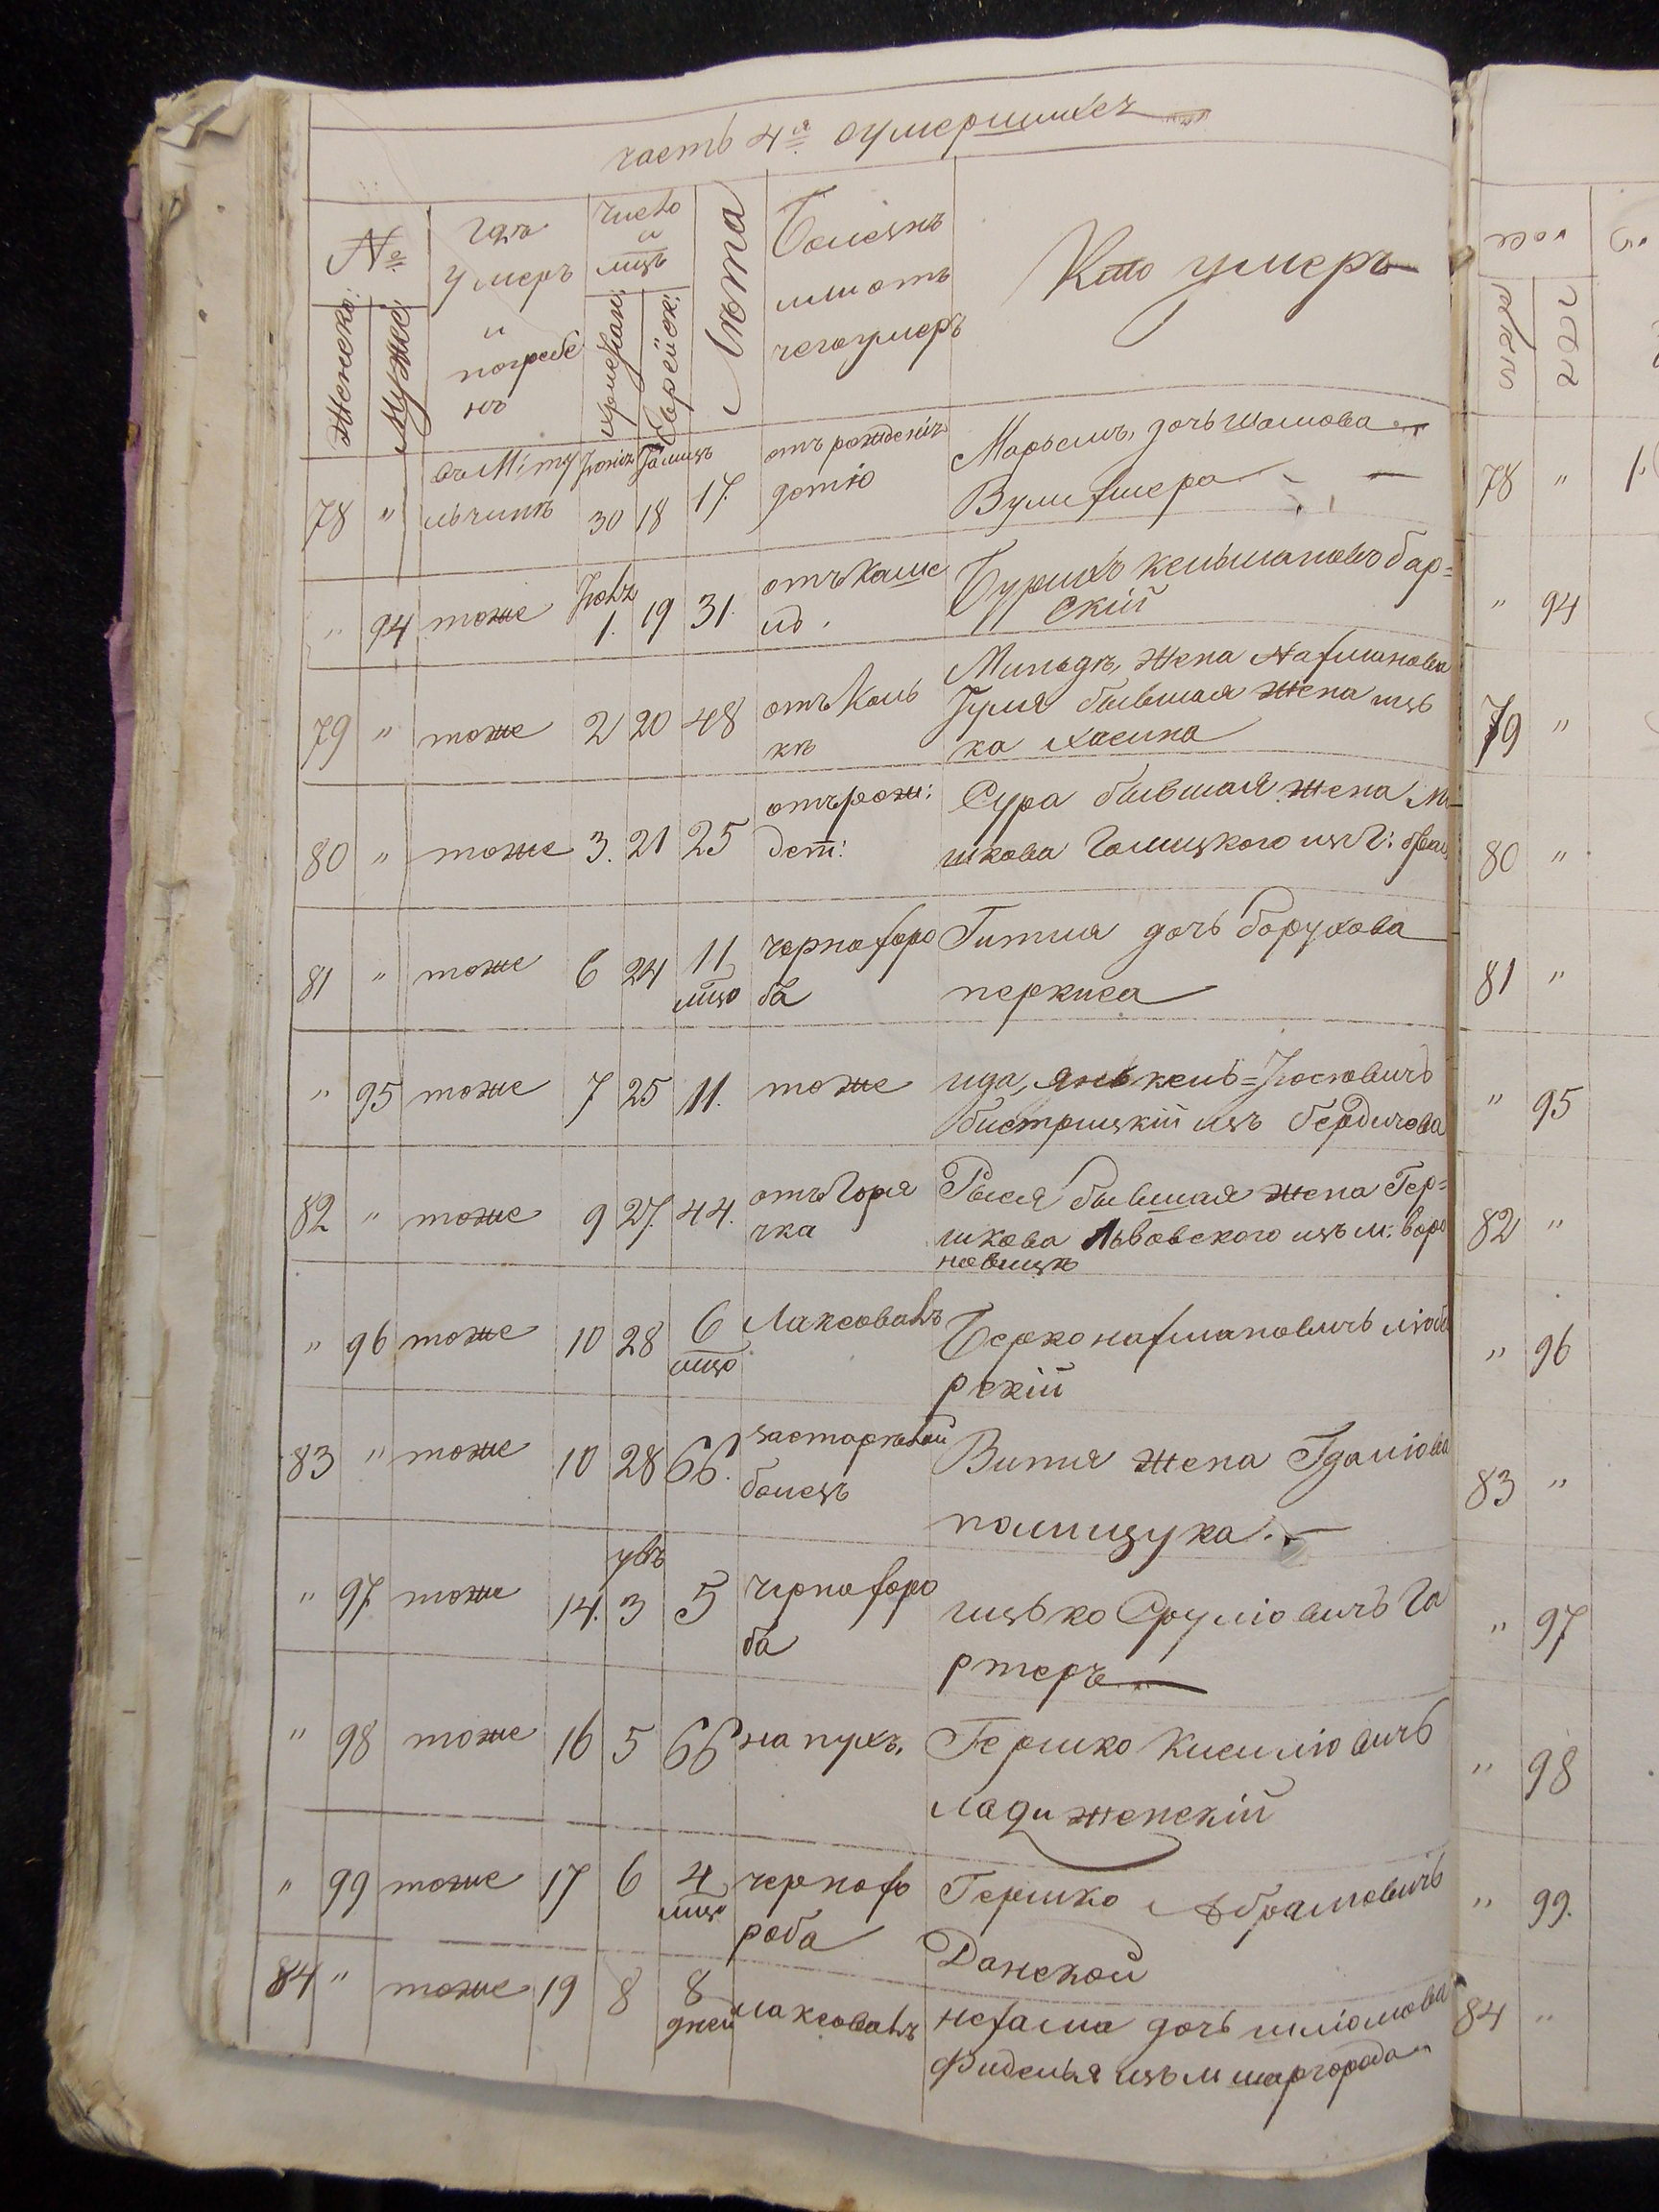 часть 4я оумершихъ
№
Женско:
Мужес:
Гдѣ
умеръ
и
погребе
нъ
число
и
мцъ
христіан:
Еврейск:
Лѣта
Болезнь
или отъ
чего умеръ
Кто умеръ
78 " въ М:
Іюнь
30 18 17. отъ рожденія
дотю
Марьемъ, дочь Шамова
Вулифмера
" 94 тоже Іюль
1. 19 31. отъ кашле
Бурихъ Кельмановъ Бар=
скій
79 " тоже 2 20 48 отъ коль
кѣ
Миндя, жена Нафманова
бывшая жена ицъ
ка Хасина
80 " тоже 3. 21 25 отъ рож:
дет:
Сура бывшая жена М
шкова Галицкого изъ г:
81 " тоже 6 24 11
мцо
чернохоро
ба
Гитля дочь Борухова
перкиса
" 95 тоже 7 25 11. тоже
ида, янькель=Іосіовичъ
бистрицкій изъ бердичева
82 " тоже 9 27. 44. отъ Горя
чка
Рыся бывшая жена Гер=
шкова Львовского изъ м. воро
новицѣ
" 96 тоже 10 28 6
мцо
Берко нахмановичъ любо
рскій
83 " тоже 10 28 66. застарелой
болезъ
Витя жена Гдаліова
полищука.
" 97 тоже 14. 3 5 чернохоро
ба
ицько Сруліовичъ Га
ртеръ
" 98 тоже 16 5 66 на пухъ.
Гершко Кисиліовичъ
ладиженскій
" 99 тоже 17 6 4
мцо
чернохо
роба
Гершко Абрамовичъ
Данской
84 " тоже 19 8 8
дней
нехама дочь шліомова
Фиделья изъ м шаргорода
78 "
" 94
79 "
80 "
81 "
" 95
82 "
" 96
83 "
" 97
" 98
" 99.
84 "